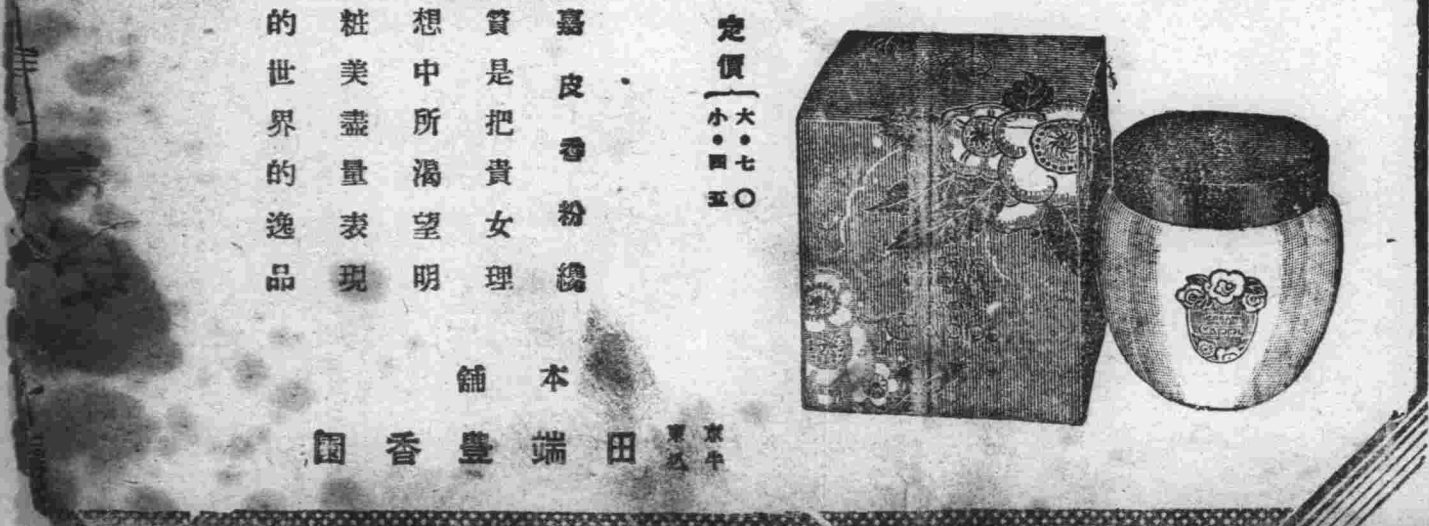 定價
大・七〇
小・四五
嘉皮香粉纔
質是把貴女理
想中所渴望明
粧美盡量表現
的世界的逸品
本舖
東京
田端豊香園